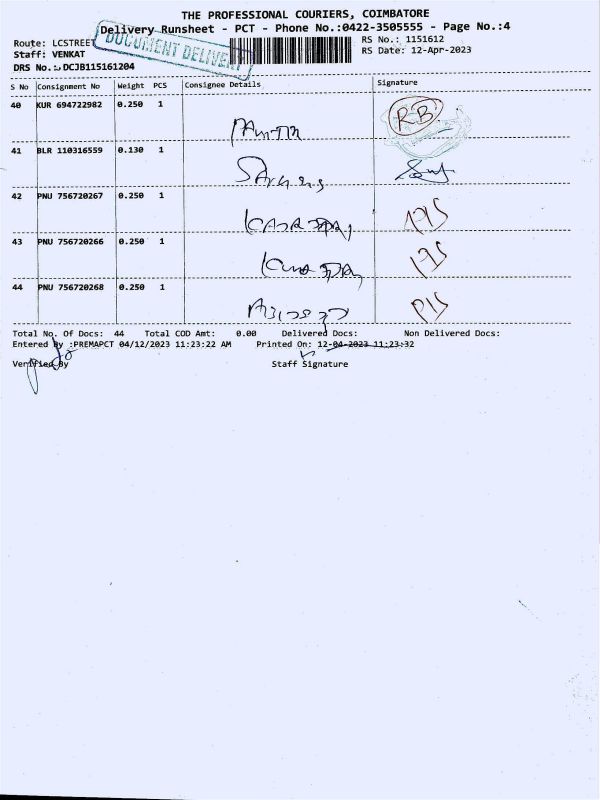 THE PROFESSIONAL COURIERS, COIMBATORE
Delivery Runsheet - PCT - Phone No.:0422-3505555 - Page No.:4
Route: LCSTREET
DOCUMENT DELIVERY
RS No.: 1151612
Staff: VENKAT
RS Date: 12-Apr-2023
DRS No.: DCJB115161204
S No Consignment No Weight PCS Consignee Details Signature
40 KUR 694722982 0.250 1
RB
41 BLR 110316559 0.130 1
42 PNU 756720267 0.250 1
43 PNU 756720266 0.250 1
44 PNU 756720268 0.250 1
Total No. Of Docs: 44 Total COD Amt: 0.00 Delivered Docs: Non Delivered Docs:
Entered By :PREMAPCT 04/12/2023 11:23:22 AM Printed On: 12-04-2023 11:23:32
Verified By Staff Signature